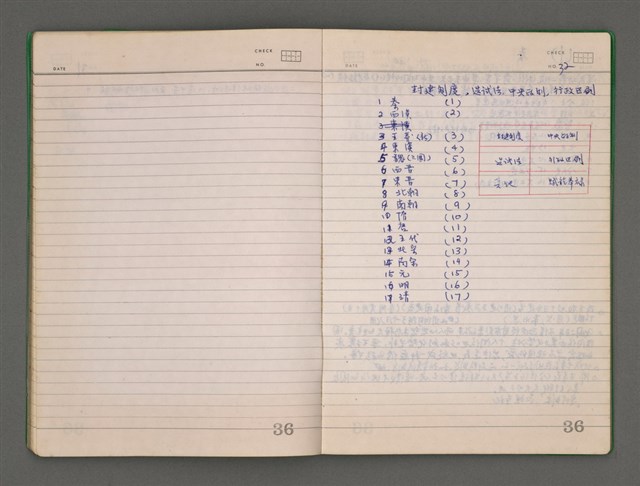 CHECK
DATE
NO.
36
CHECK
DATE
NO. 32
封建制度, 選試法, 中央政制, 行政区制
1 秦 (1)
2 西漢 (2)
3 東漢
3 王莽(新) (3)
4 東漢 (4)
5 魏(三国) (5)
6 西晋 (6)
7 東晋 (7)
8 北朝 (8)
9 南朝 (9)
10 隋 (10)
11 唐 (11)
12 五代 (12)
13 北宋 (13)
14 南宋 (14)
15 元 (15)
16 明 (16)
17 清 (17)
封建制度 中央政制
選試法 行政区制
36